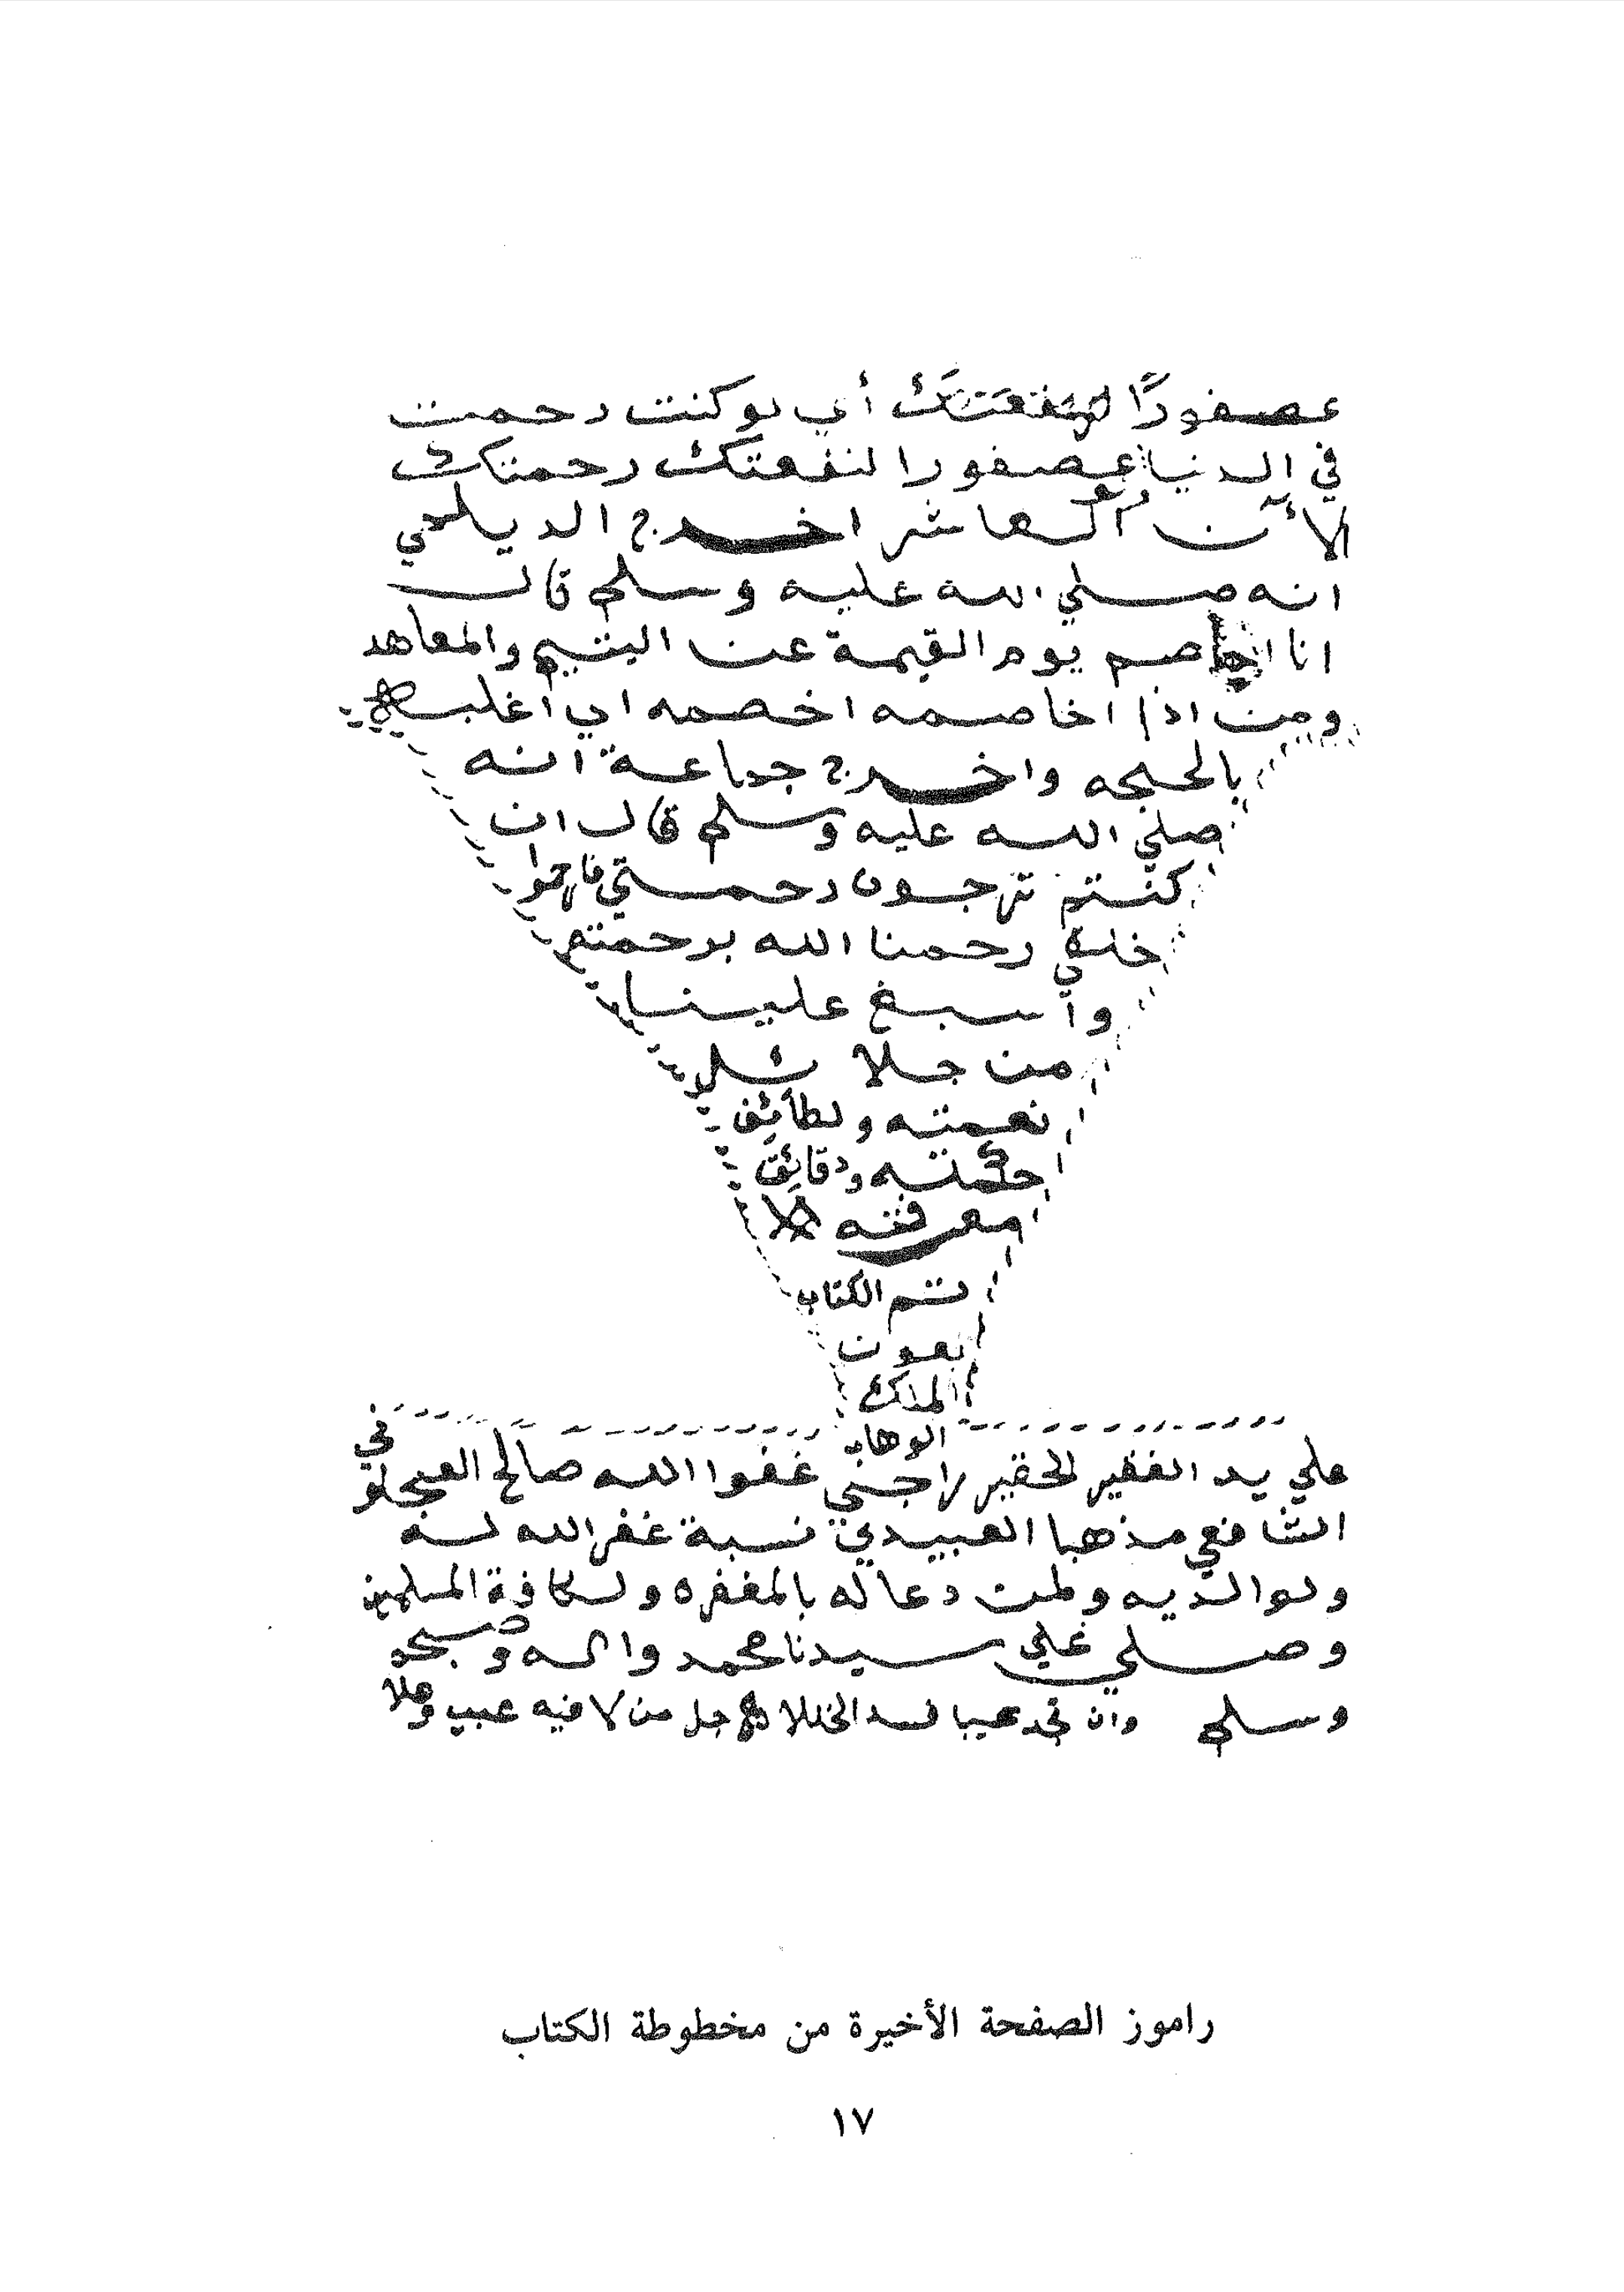 عصفورًا لنفعتك أي لو كنت رحمت
في الدنيا عصفورا لنفعتك رحمتك
الآن العاشر اخرج الديلمي
انه صلي الله عليه وسلم قال
انا اخاصم يوم القيمة عن اليتيم والمعاهد
ومن اخاصمه اخصمه اي اغلبه
بالحجه واخرج جماعة انه
صلي الله عليه وسلم قال ان
كنتم ترجون رحمتي فارحموا
خلقي رحمنا الله برحمته
وأسبغ علينا
من جلائل
نعمته ولطائف
حكمته ودقائق
معرفته
تم الكتاب
بعون
الملك
الوهاب
علي يد الفقير الحقير راجي عفوا الله صالح العجلوني
الشافعي مذهبا العبيدي نسبة غفر الله له
ولوالديه ولمن دعا له بالمغفره ولكافة المسلمين
وصلي علي سيدنا محمد واله وصحبه
وسلم وان تجد عيبا فسد الخللا جل من لا فيه عيب وعلا
راموز الصفحة الأخيرة من مخطوطة الكتاب
١٧